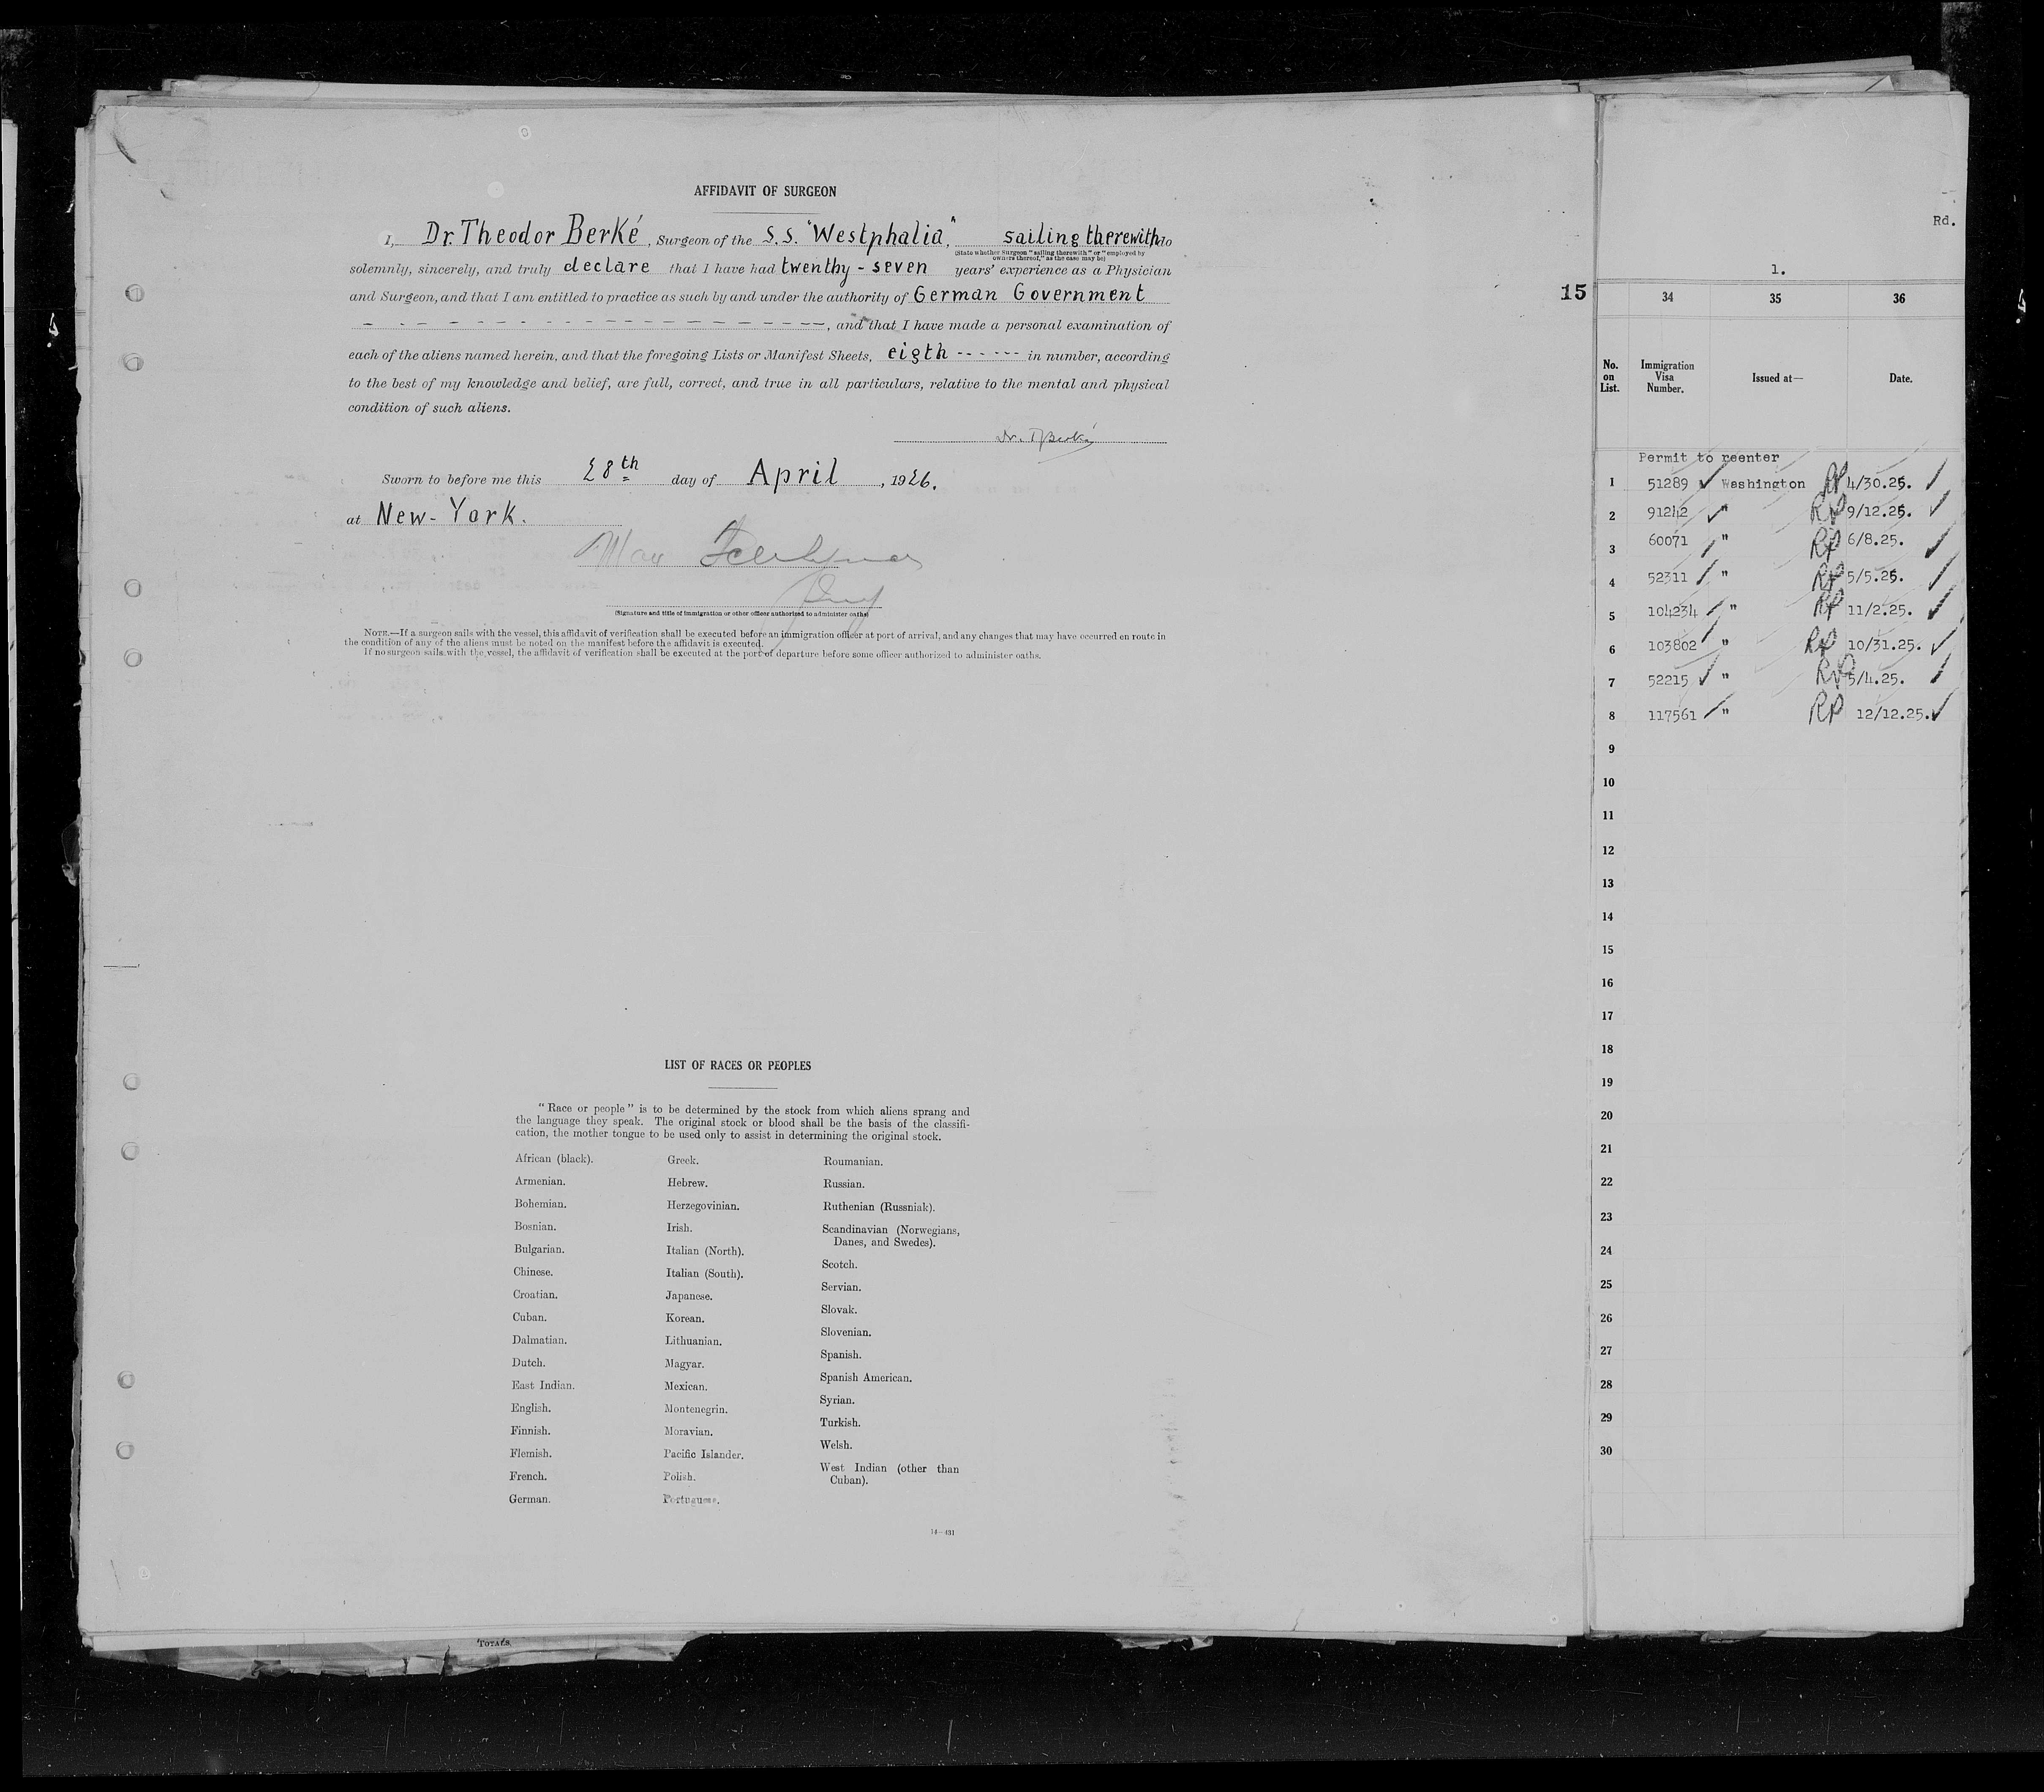 AFFIDAVIT OF SURGEON
I, Dr. Theodor Berké, Surgeon of the S.S. "Westphalia," sailing therewith do
(State whether Surgeon "sailing therewith" or "employed by
owners thereof," as the case may be)
solemnly, sincerely, and truly declare that I have had twenthy-seven years' experience as a Physician
and Surgeon, and that I am entitled to practice as such by and under the authority of German Government
, and that I have made a personal examination of
each of the aliens named herein, and that the foregoing Lists or Manifest Sheets, eigth in number, according
to the best of my knowledge and belief, are full, correct, and true in all particulars, relative to the mental and physical
condition of such aliens.
Dr. Th Berké
Sworn to before me this 28th day of April, 1926.
at New-York.
Max
(Signature and title of immigration or other officer authorized to administer oaths)
NOTE.—If a surgeon sails with the vessel, this affidavit of verification shall be executed before an immigration officer at port of arrival, and any changes that may have occurred en route in
the condition of any of the aliens must be noted on the manifest before the affidavit is executed.
If no surgeon sails with the vessel, the affidavit of verification shall be executed at the port of departure before some officer authorized to administer oaths.
LIST OF RACES OR PEOPLES
"Race or people" is to be determined by the stock from which aliens sprang and
the language they speak. The original stock or blood shall be the basis of the classifi-
cation, the mother tongue to be used only to assist in determining the original stock.
African (black).
Armenian.
Bohemian.
Bosnian.
Bulgarian.
Chinese.
Croatian.
Cuban.
Dalmatian.
Dutch.
East Indian.
English.
Finnish.
Flemish.
French.
German.
Greek.
Hebrew.
Herzegovinian.
Irish.
Italian (North).
Italian (South).
Japanese.
Korean.
Lithuanian.
Magyar.
Mexican.
Montenegrin.
Moravian.
Pacific Islander.
Polish.
Portuguese.
Roumanian.
Russian.
Ruthenian (Russniak).
Scandinavian (Norwegians,
Danes, and Swedes).
Scotch.
Servian.
Slovak.
Slovenian.
Spanish.
Spanish American.
Syrian.
Turkish.
Welsh.
West Indian (other than
Cuban).
14—431
TOTALS
15
Rd.
1.
34 35 36
No. on List. Immigration Visa Number. Issued at— Date.
Permit to reenter
1 51289 Washington RP 4/30.25.
2 91242 " RP 9/12.25.
3 60071 " RP 6/8.25.
4 52311 " RP 5/5.25.
5 104234 " RP 11/2.25.
6 103802 " RP 10/31.25.
7 52215 " RP 5/4.25.
8 117561 " RP 12/12.25.
9
10
11
12
13
14
15
16
17
18
19
20
21
22
23
24
25
26
27
28
29
30